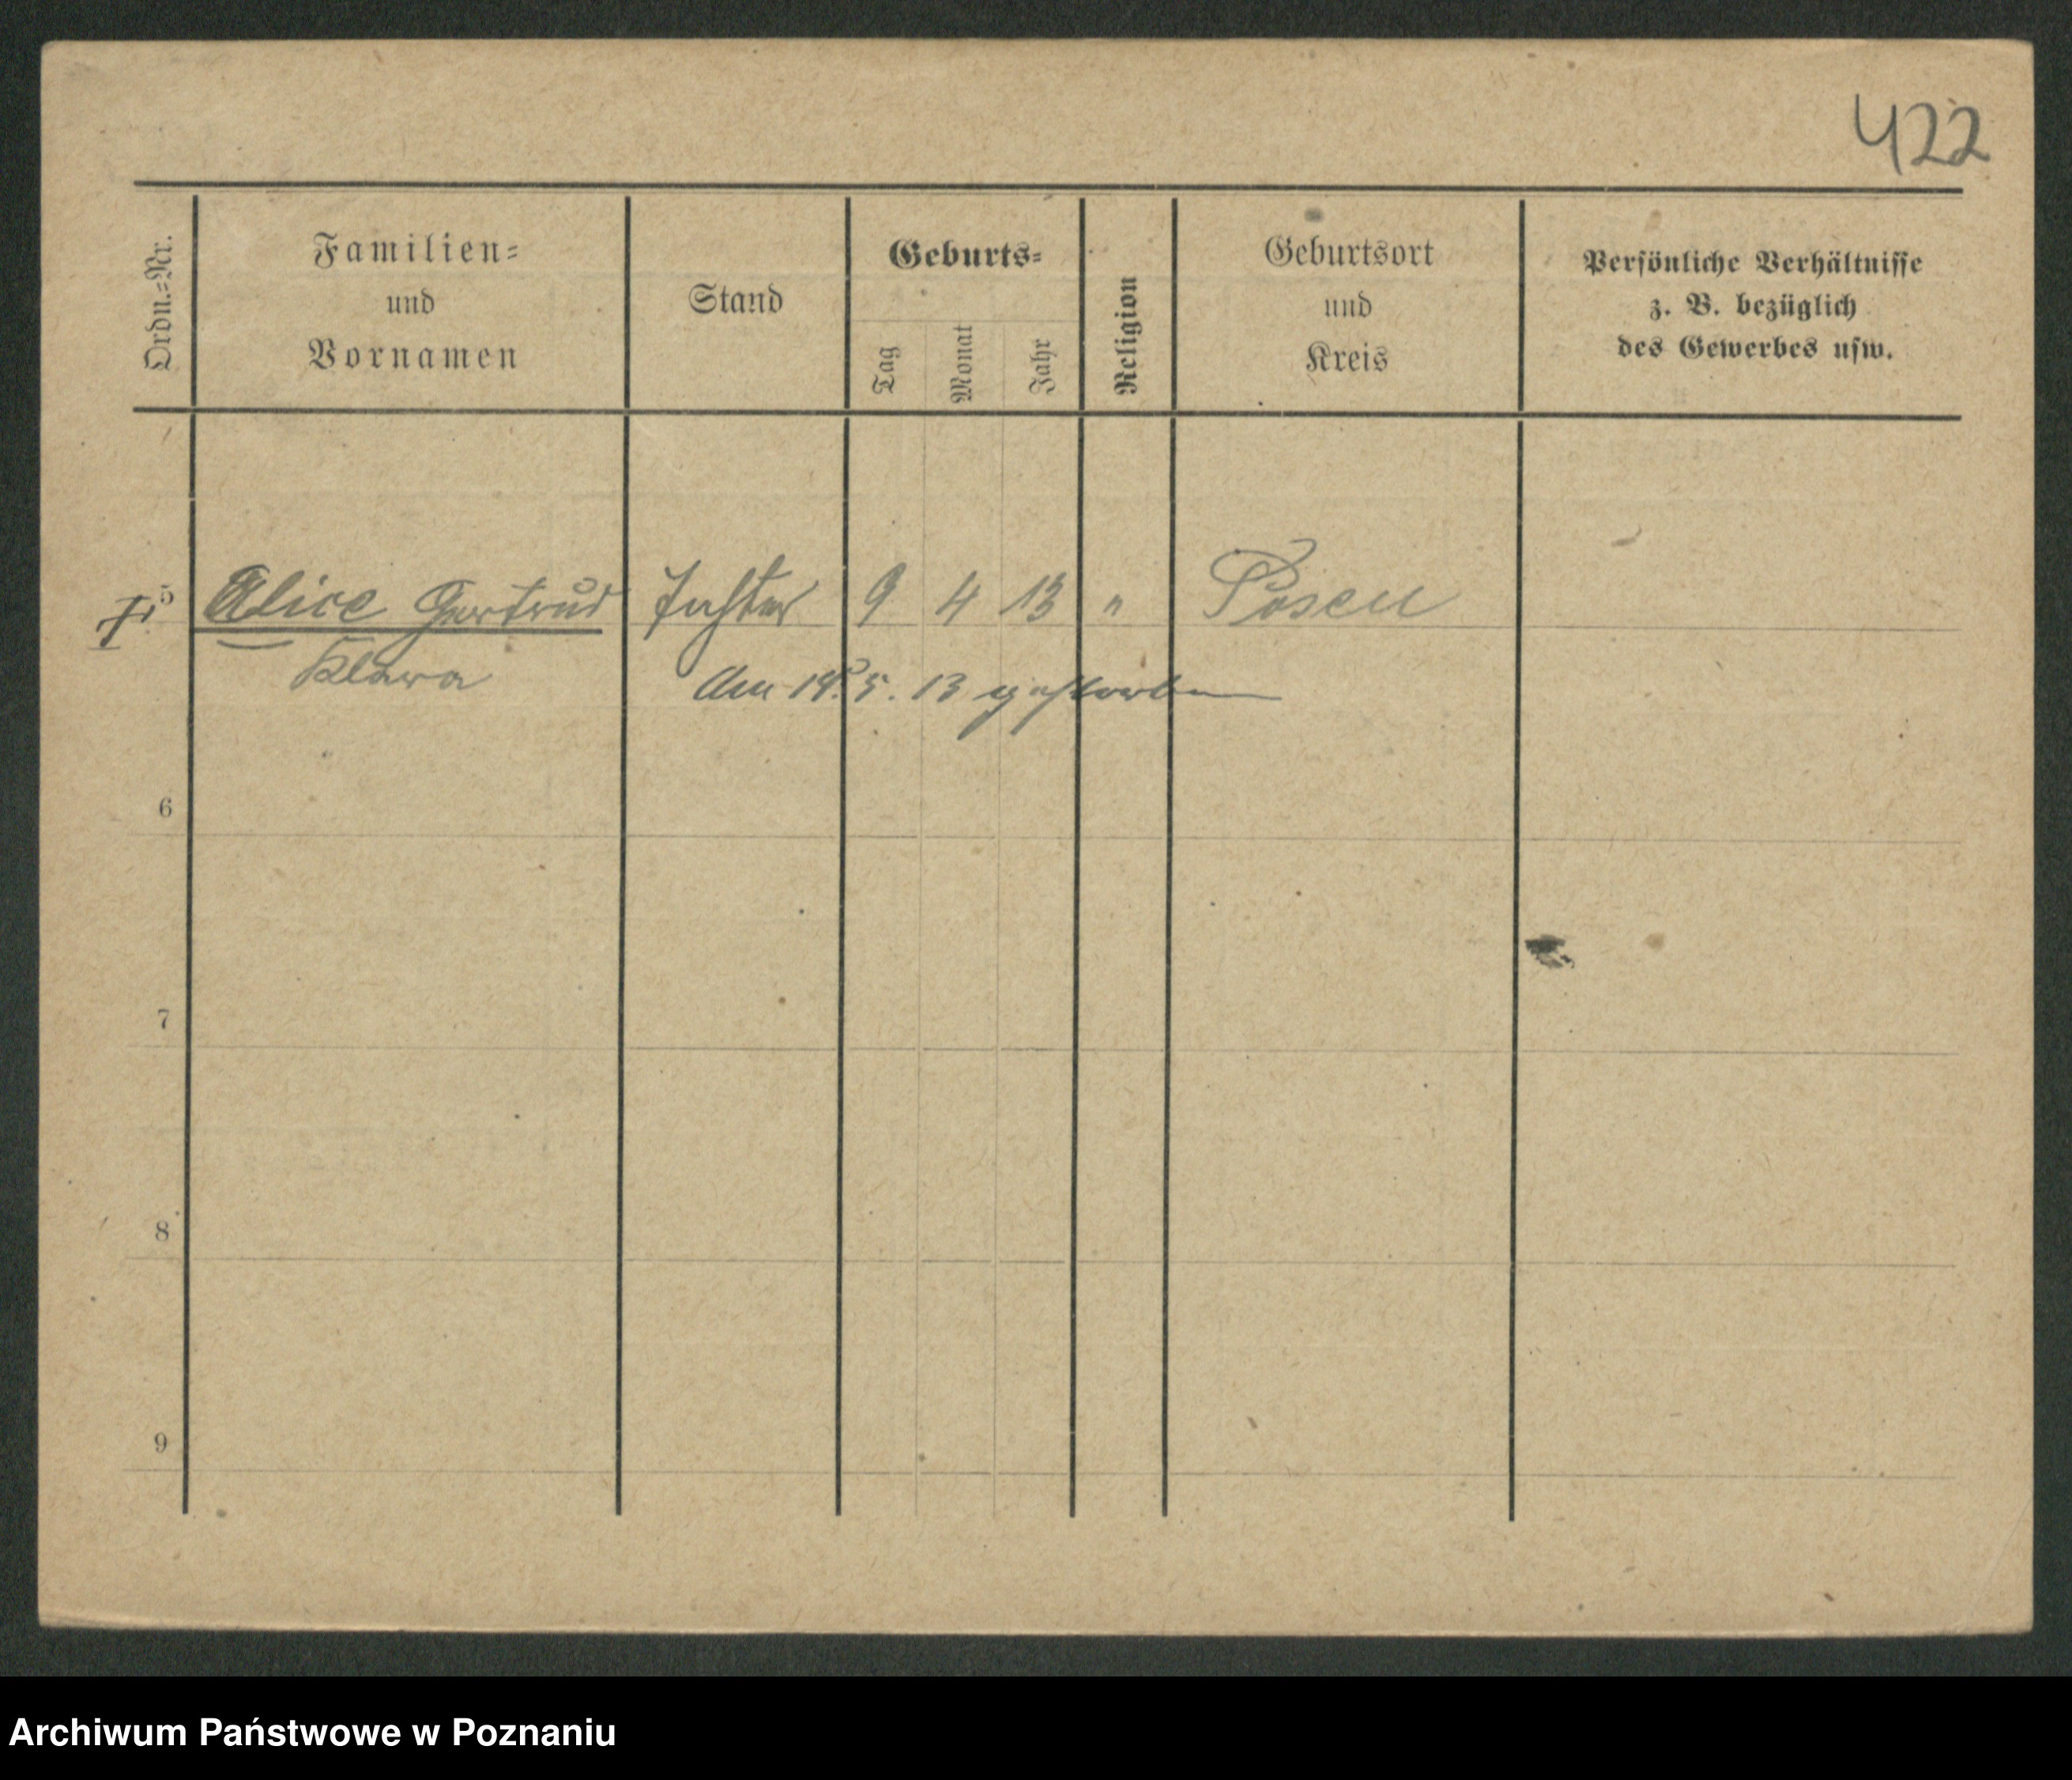 422
Ordn.-Nr.
Familien-
und
Vornamen
Stand
Geburts-
Tag
Monat
Jahr
Religion
Geburtsort
und
Kreis
Persönliche Verhältnisse
z. B. bezüglich
des Gewerbes usw.
5 Alice Gertrud Tochter 9 4 13 " Posen
Klara
Am 5. 13 gestorben
6
7
8
9
Archiwum Państwowe w Poznaniu